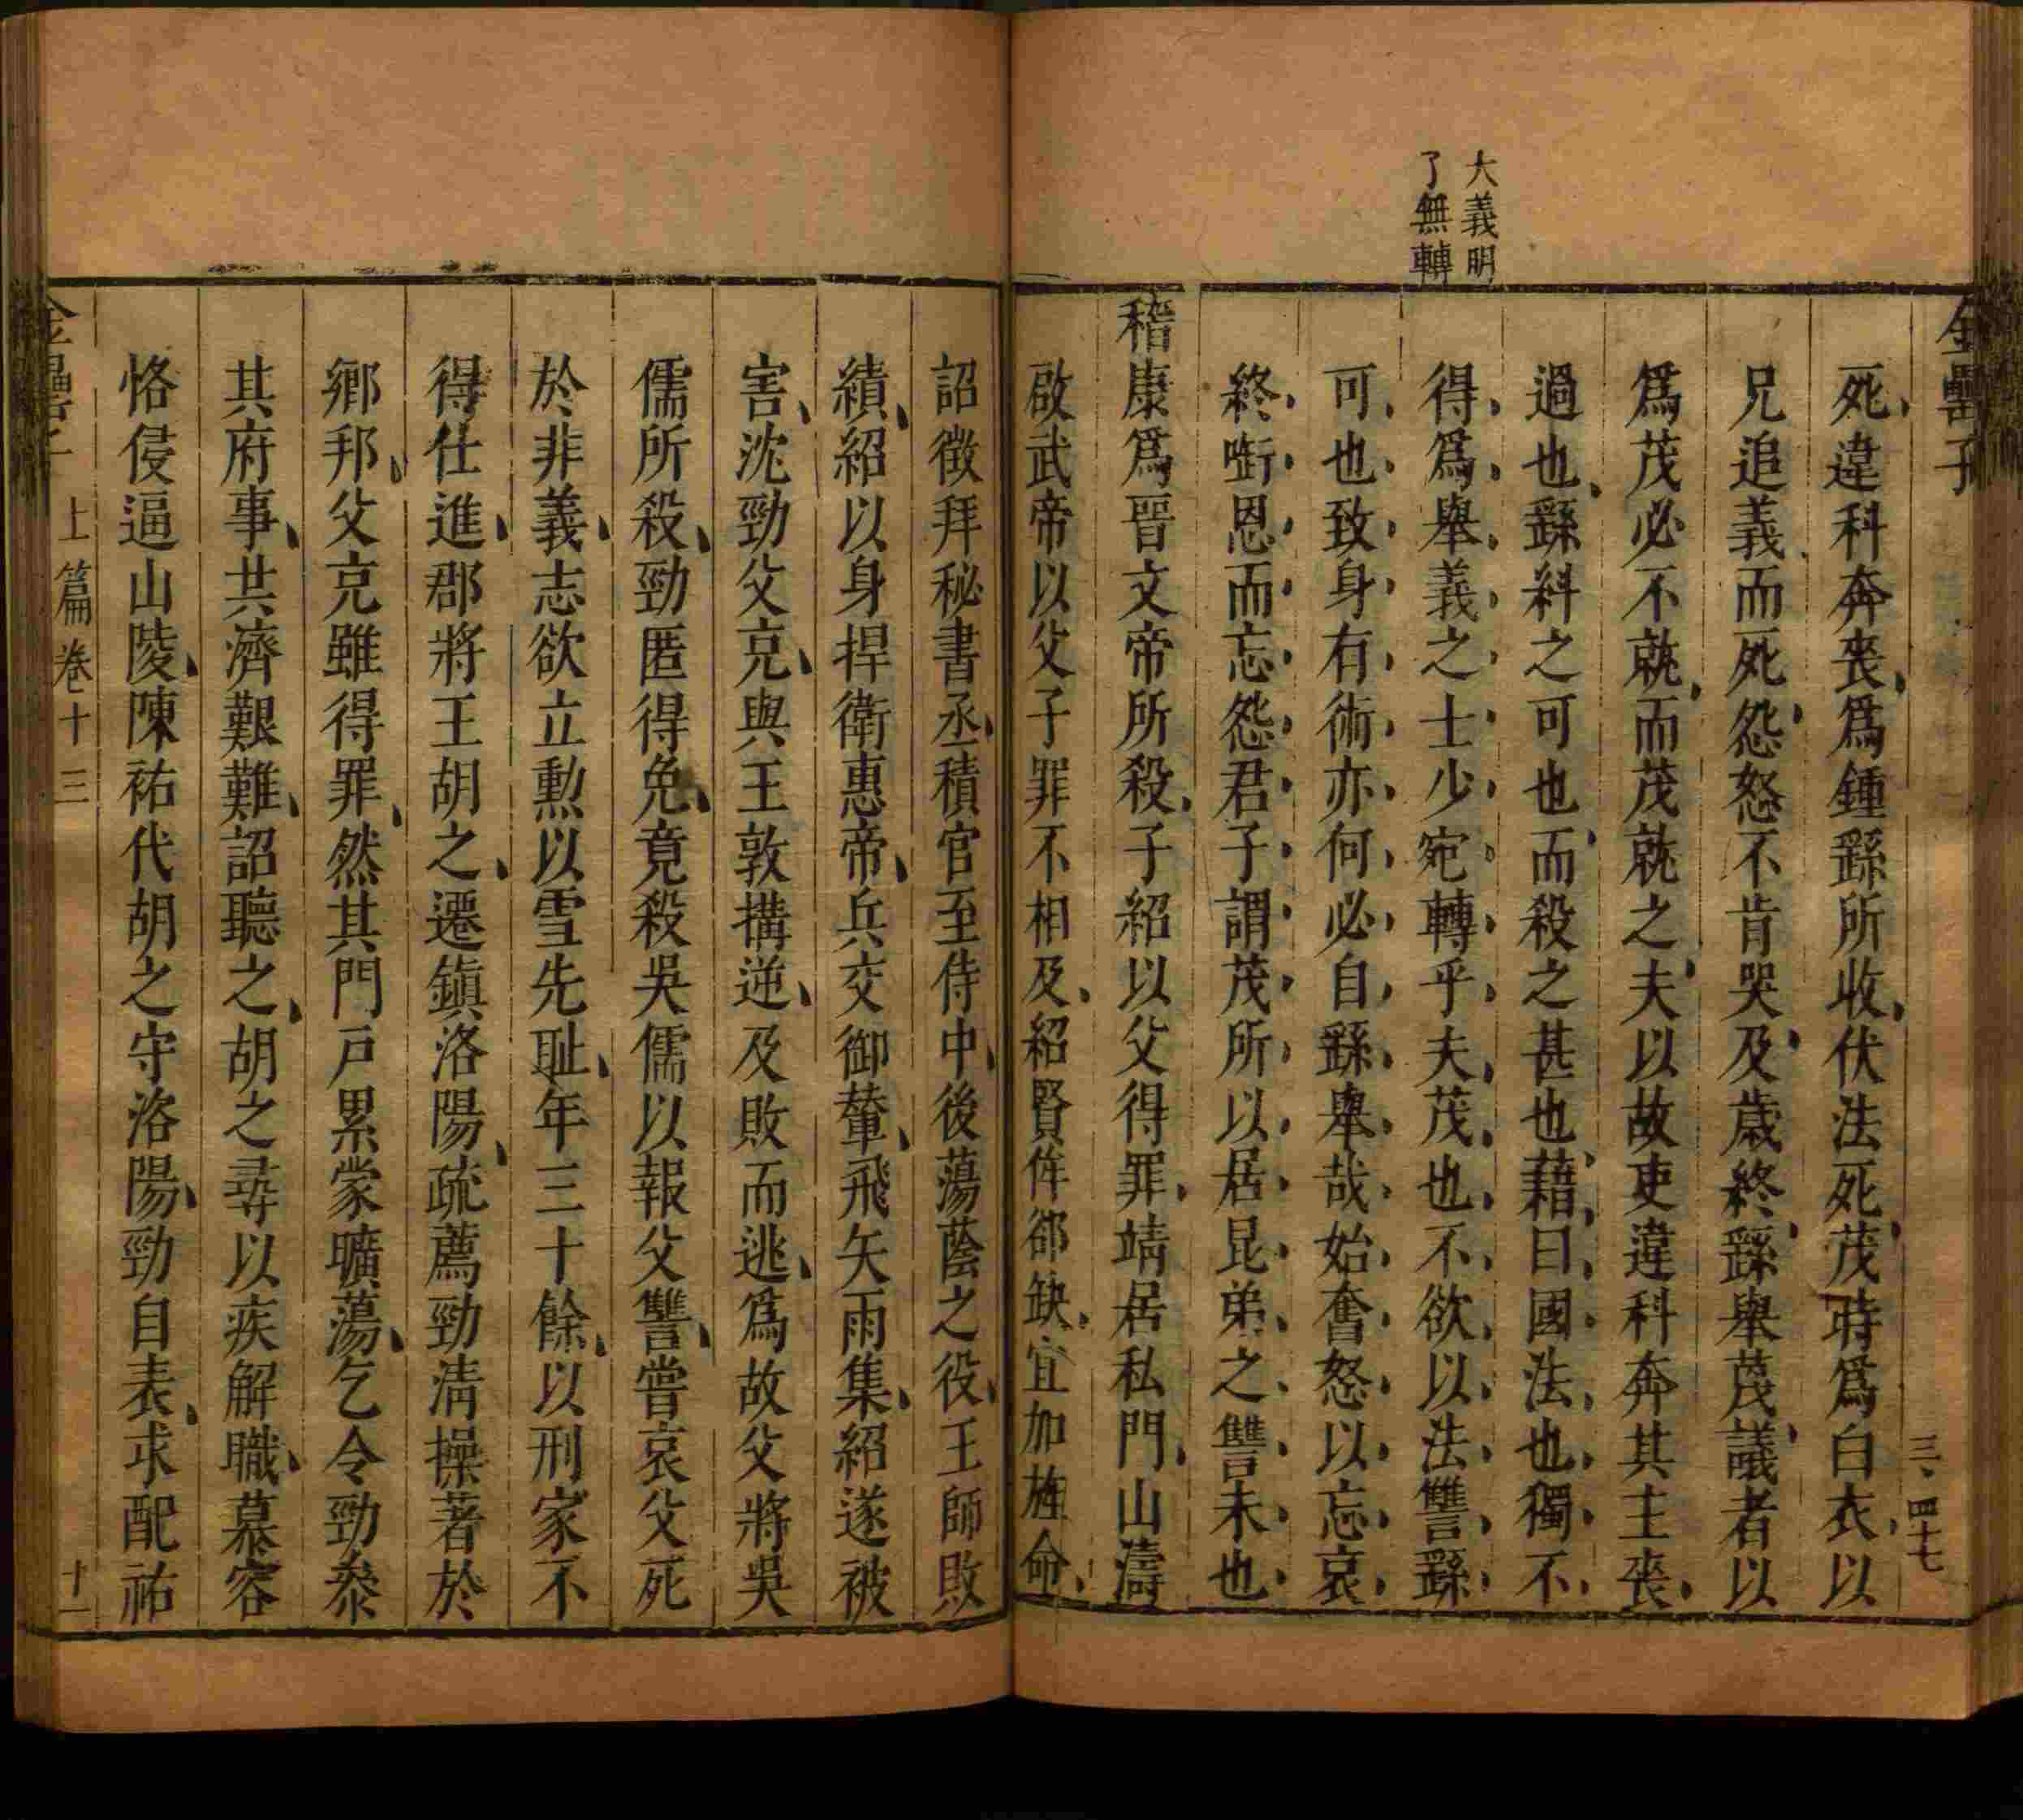 金罍子
三、四七
大義明
了無轉
死違科奔喪爲鍾繇所收伏法死茂時爲白衣以
兄追義而死怨怒不肯哭及歲終繇舉茂議者以
爲茂必不就而茂就之夫以故吏違科奔其主喪
過也繇糾之可也而殺之甚也藉曰國法也獨不
得爲舉義之士少宛轉乎夫茂也不欲以法讐繇
可也致身有術亦何必自繇舉哉始奮怒以忘哀
終啣恩而忘怨君子謂茂所以居昆弟之讐未也
稽康爲晉文帝所殺子紹以父得罪靖居私門山濤
啟武帝以父子罪不相及紹賢侔郤缺宜加旌命
詔徴拜秘書丞積官至侍中後蕩陰之役王師敗
績紹以身捍衛惠帝兵交御輦飛矢雨集紹遂被
害沈勁父充與王敦搆逆及敗而逃爲故父將吳
儒所殺勁匿得免竟殺吳儒以報父讐嘗哀父死
於非義志欲立勲以雪先耻年三十餘以刑家不
得仕進郡將王胡之遷鎭洛陽疏薦勁清操著於
鄉邦父充雖得罪然其門戸累蒙曠蕩乞令勁叅
其府事共濟艱難詔聽之胡之尋以疾解職慕容
恪侵逼山陵陳祐代胡之守洛陽勁自表求配祐
金罍子 上篇卷十三 十一